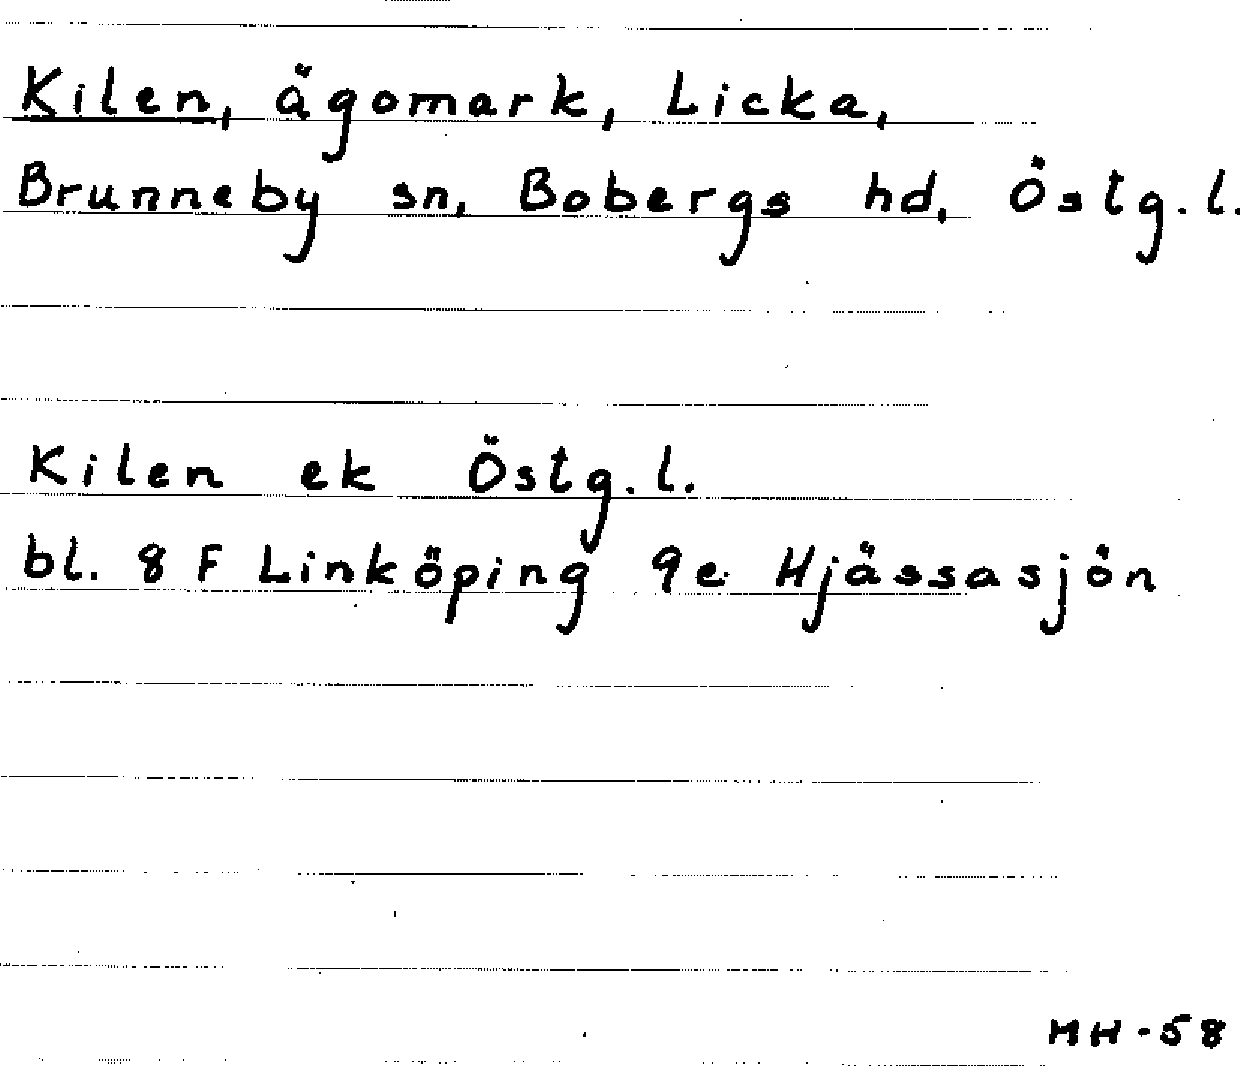 Kilen, ägomark, Licka,
Brunneby sn, Bobergs hd, Östg.l.
Kilen ek Östg.l.
bl. 8 F Linköping 9e Hjässasjön
MH-58